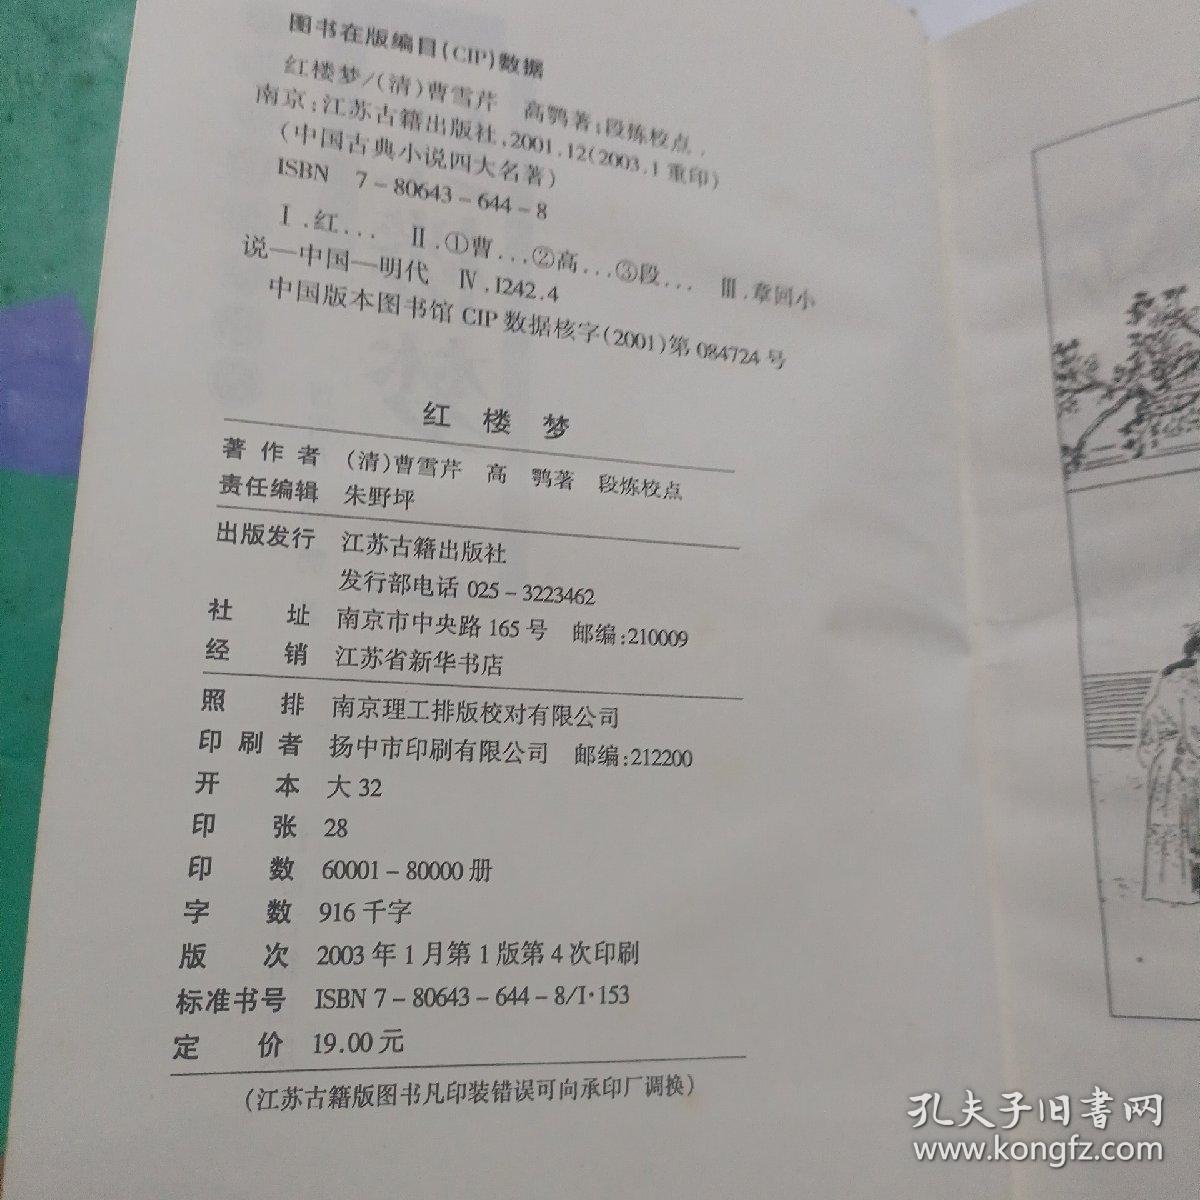 图书在版编目(CIP)数据
红楼梦/(清)曹雪芹 高鹗著;段炼校点.
南京:江苏古籍出版社,2001.12(2003.1重印)
(中国古典小说四大名著)
ISBN 7-80643-644-8
Ⅰ.红... Ⅱ.①曹...②高...③段... Ⅲ.章回小
说—中国—明代 Ⅳ.I242.4
中国版本图书馆CIP数据核字(2001)第084724号
红 楼 梦
著 作 者 (清)曹雪芹 高 鹗著 段炼校点
责任编辑 朱野坪
出版发行 江苏古籍出版社
发行部电话 025-3223462
社 址 南京市中央路165号 邮编:210009
经 销 江苏省新华书店
照 排 南京理工排版校对有限公司
印 刷 者 扬中市印刷有限公司 邮编:212200
开 本 大32
印 张 28
印 数 60001-80000册
字 数 916千字
版 次 2003年1月第1版第4次印刷
标准书号 ISBN 7-80643-644-8/I·153
定 价 19.00元
(江苏古籍版图书凡印装错误可向承印厂调换)
孔夫子旧书网
www.kongfz.com